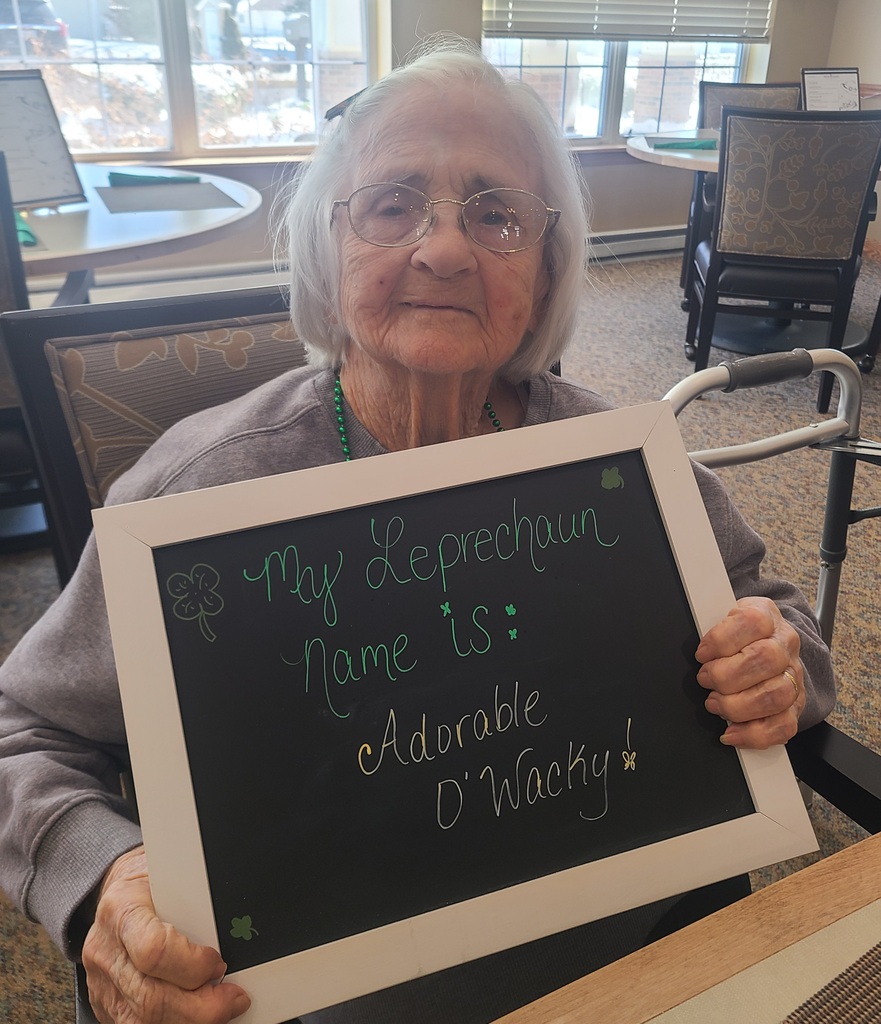 My Leprechaun
name is:
Adorable
O'Wacky!